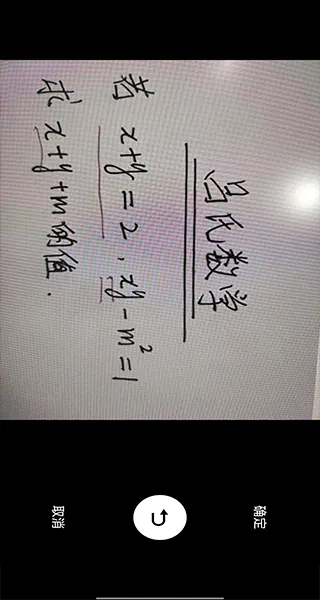 吕氏数学
若 x+y=2，xy-m²=1
求 x+y+m 的值.
取消
确定